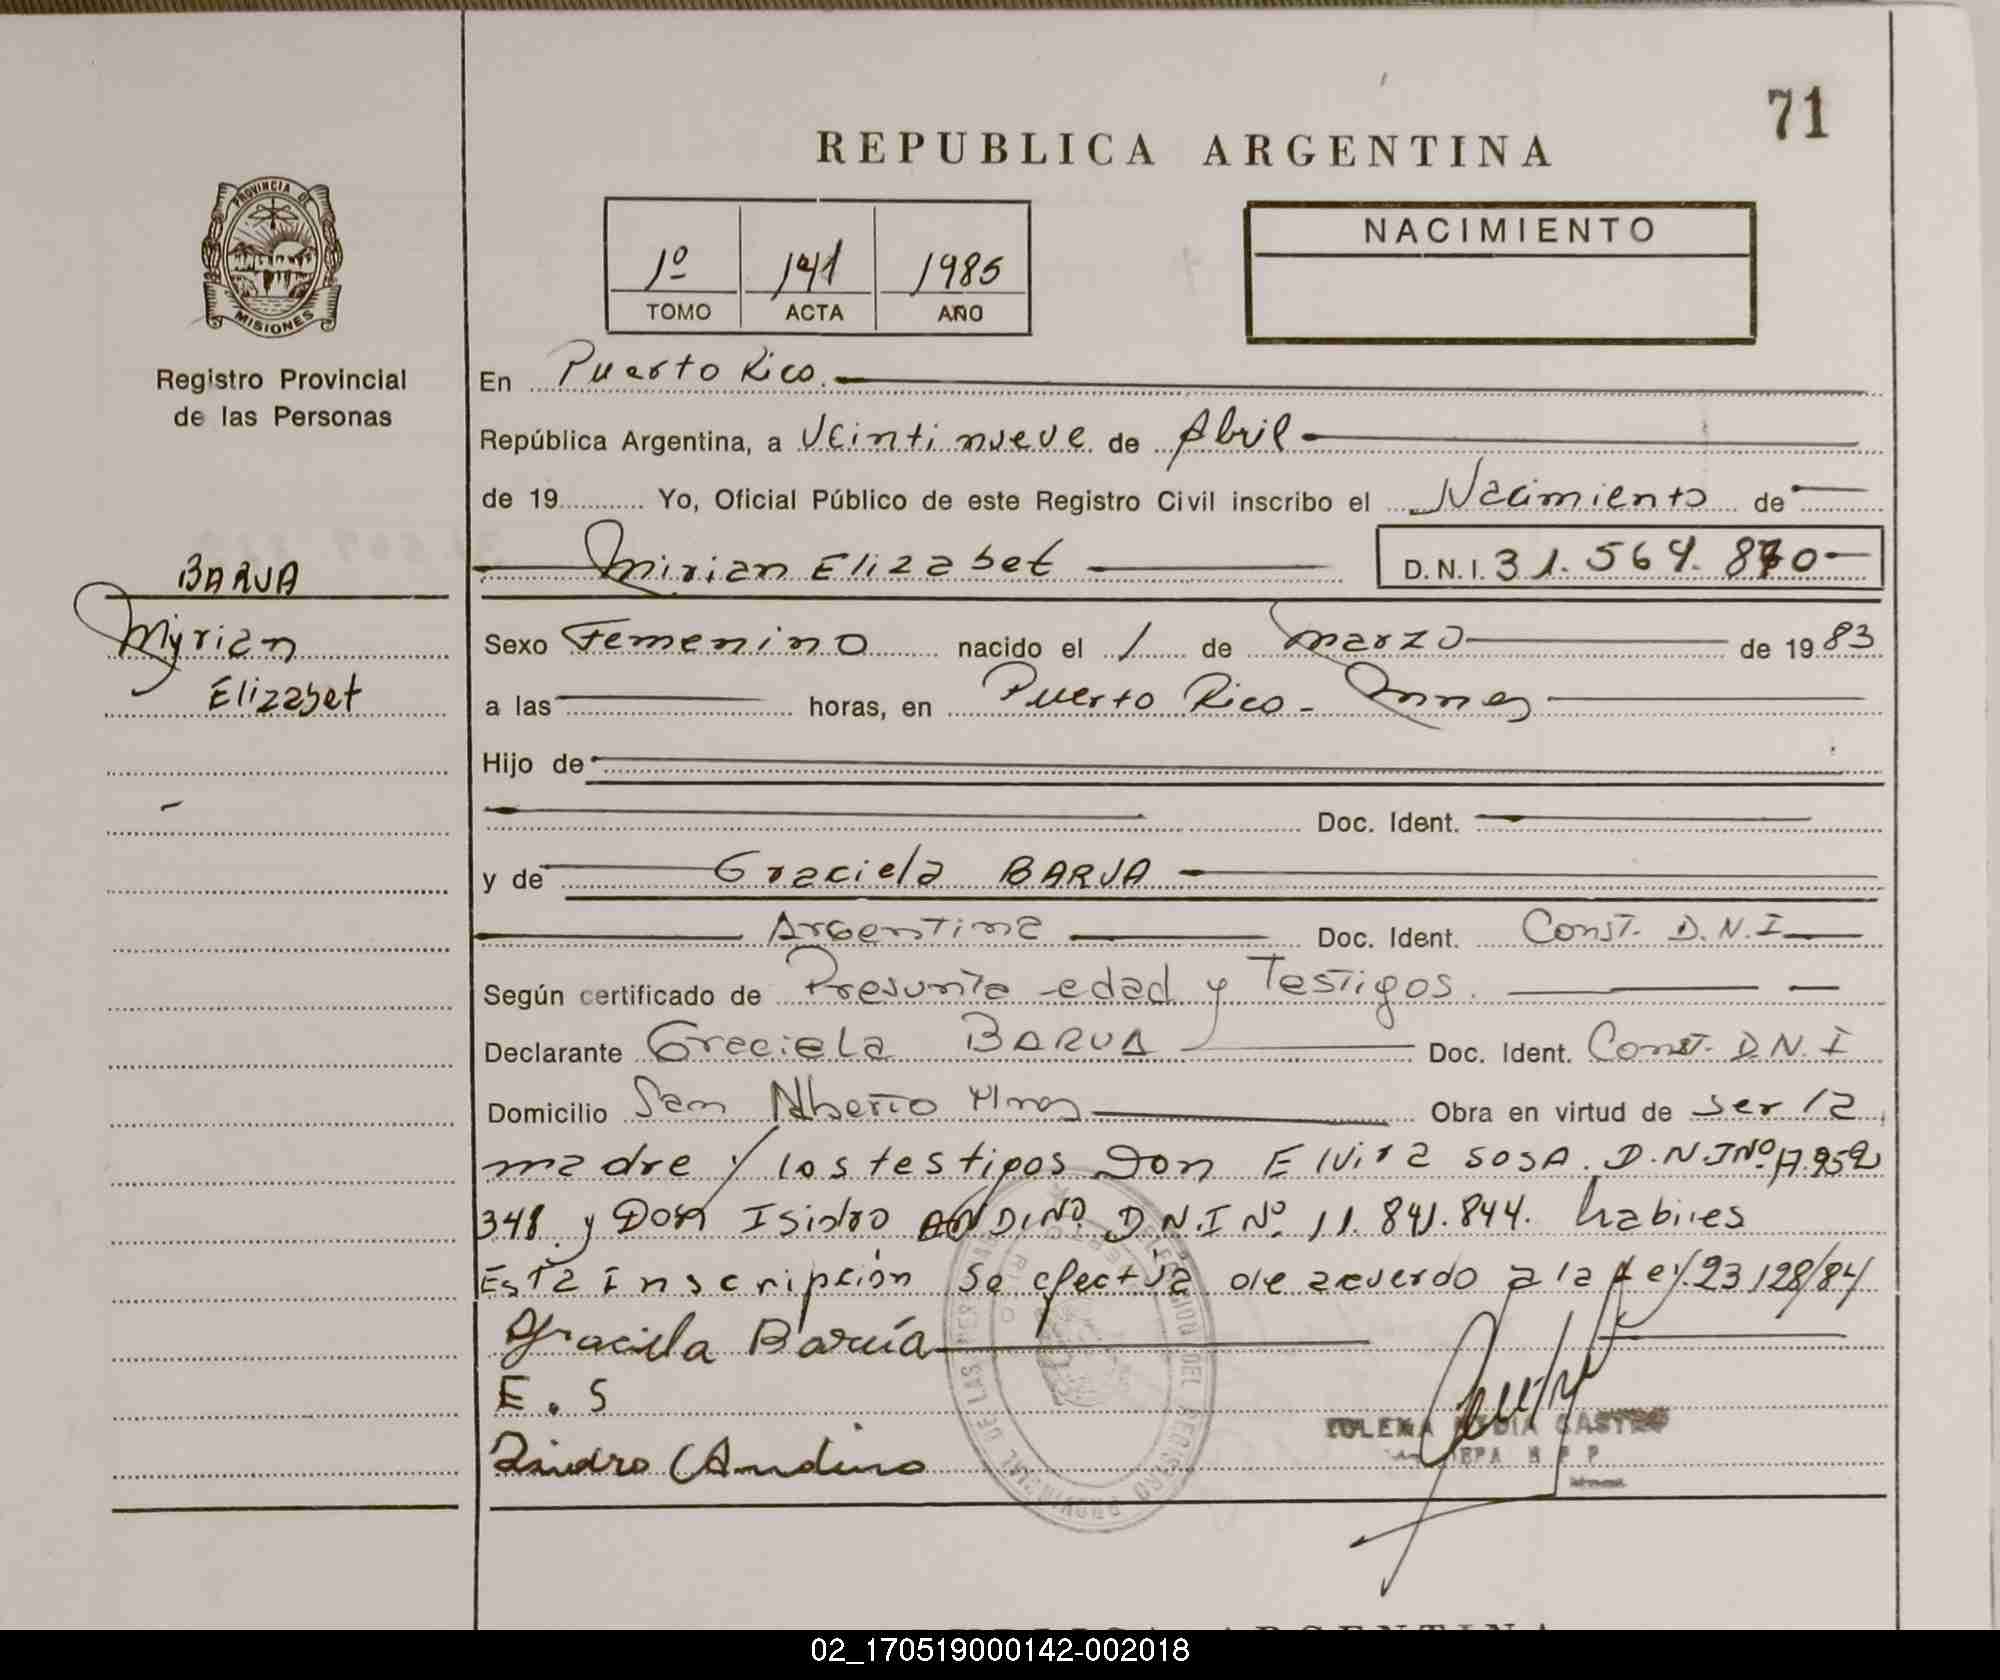 71
REPUBLICA ARGENTINA
PROVINCIA DE
MISIONES
1º 141 1985
TOMO ACTA AÑO
NACIMIENTO
Registro Provincial
de las Personas
BARUA
Myrian
Elizabet
En Puerto Rico.
República Argentina, a Veintinueve de Abril
de 19 Yo, Oficial Público de este Registro Civil inscribo el Nacimiento de
Mirian Elizabet D.N.I. 31.564.870
Sexo Femenino nacido el 1 de marzo de 1983
a las horas, en Puerto Rico - Mnes
Hijo de
Doc. Ident.
y de Graciela BARUA
Argentina Doc. Ident. Const. D.N.I
Según certificado de Presunta edad y Testigos.
Declarante Graciela BARUA Doc. Ident. Const. D.N.I
Domicilio San Alberto Mnes Obra en virtud de ser la
madre y los testigos Don Elvira SOSA. D.N.I Nº 17.952
348 y Don Isidro ANDINO. D.N.I Nº 11.841.844. habiles
Esta inscripción se efectua de acuerdo a la Ley. 23128/84
Graciela Barúa
E. S
Isidro Andino
LYDIA CASTRO
02_170519000142-002018